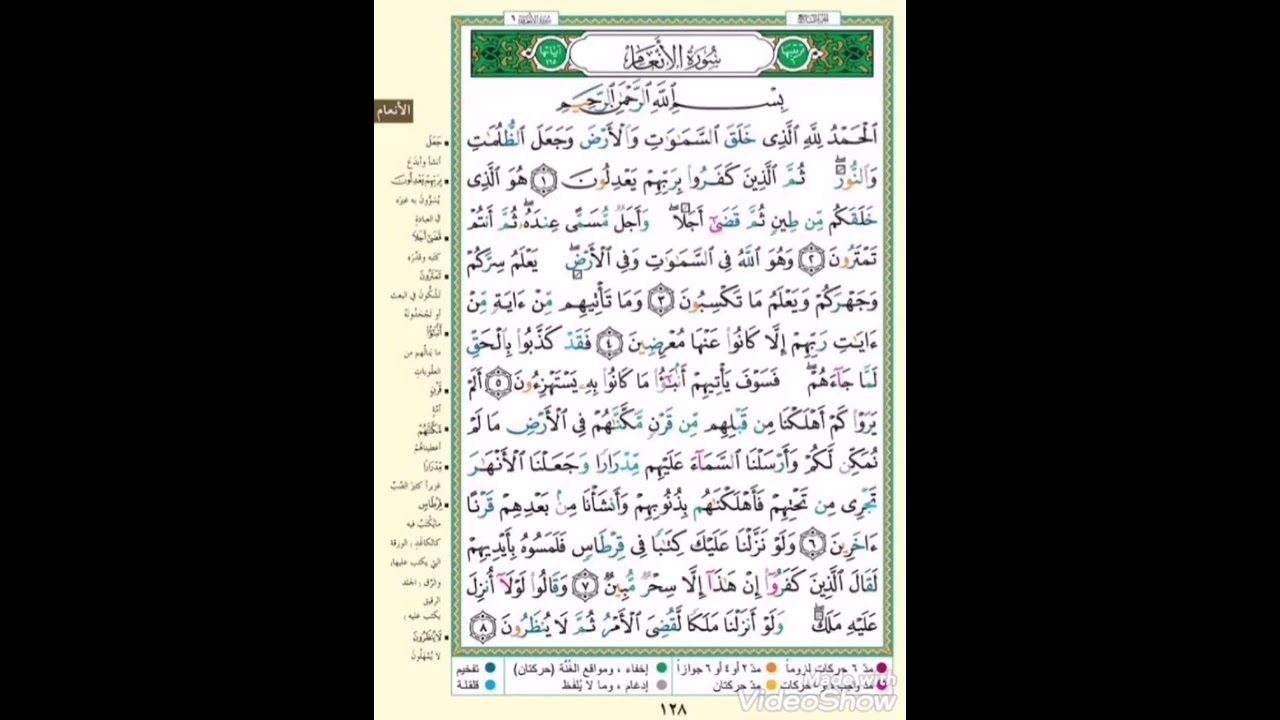 الجزء السابع
سورة الأنعام ٦
ترتيبها ٦
سُورَةُ الأَنْعَامِ
آياتها ١٦٥
بِسْمِ اللَّهِ الرَّحْمَٰنِ الرَّحِيمِ
الْحَمْدُ لِلَّهِ الَّذِى خَلَقَ السَّمَٰوَٰتِ وَالْأَرْضَ وَجَعَلَ الظُّلُمَٰتِ
وَالنُّورَ ۖ ثُمَّ الَّذِينَ كَفَرُوا بِرَبِّهِمْ يَعْدِلُونَ ١ هُوَ الَّذِى
خَلَقَكُم مِّن طِينٍ ثُمَّ قَضَىٰٓ أَجَلًا ۖ وَأَجَلٌ مُّسَمًّى عِندَهُۥ ۖ ثُمَّ أَنتُمْ
تَمْتَرُونَ ٢ وَهُوَ اللَّهُ فِى السَّمَٰوَٰتِ وَفِى الْأَرْضِ ۖ يَعْلَمُ سِرَّكُمْ
وَجَهْرَكُمْ وَيَعْلَمُ مَا تَكْسِبُونَ ٣ وَمَا تَأْتِيهِم مِّنْ ءَايَةٍ مِّنْ
ءَايَٰتِ رَبِّهِمْ إِلَّا كَانُوا عَنْهَا مُعْرِضِينَ ٤ فَقَدْ كَذَّبُوا بِالْحَقِّ
لَمَّا جَآءَهُمْ ۖ فَسَوْفَ يَأْتِيهِمْ أَنۢبَٰٓؤُا مَا كَانُوا بِهِۦ يَسْتَهْزِءُونَ ٥ أَلَمْ
يَرَوْا كَمْ أَهْلَكْنَا مِن قَبْلِهِم مِّن قَرْنٍ مَّكَّنَّٰهُمْ فِى الْأَرْضِ مَا لَمْ
نُمَكِّن لَّكُمْ وَأَرْسَلْنَا السَّمَآءَ عَلَيْهِم مِّدْرَارًا وَجَعَلْنَا الْأَنْهَٰرَ
تَجْرِى مِن تَحْتِهِمْ فَأَهْلَكْنَٰهُم بِذُنُوبِهِمْ وَأَنشَأْنَا مِنۢ بَعْدِهِمْ قَرْنًا
ءَاخَرِينَ ٦ وَلَوْ نَزَّلْنَا عَلَيْكَ كِتَٰبًا فِى قِرْطَاسٍ فَلَمَسُوهُ بِأَيْدِيهِمْ
لَقَالَ الَّذِينَ كَفَرُوٓا إِنْ هَٰذَآ إِلَّا سِحْرٌ مُّبِينٌ ٧ وَقَالُوا لَوْلَآ أُنزِلَ
عَلَيْهِ مَلَكٌ ۖ وَلَوْ أَنزَلْنَا مَلَكًا لَّقُضِىَ الْأَمْرُ ثُمَّ لَا يُنظَرُونَ ٨
الأنعام
جَعَلَ
أنشأ وأبدع
بِرَبِّهِمْ يَعْدِلُونَ
يُسَوُّونَ به غيرَه
في العبادةِ
قَضَىٰٓ أَجَلًا
كتبه وقدّره
تَمْتَرُونَ
تَشُكُّونَ في البعث
أو تَجْحَدُونَهُ
أَنۢبَٰٓؤُا
ما ينالُهم من
العقوباتِ
قَرْنٍ
أمّةٍ
مَكَّنَّٰهُمْ
أعطيناهُمْ
مِّدْرَارًا
غزيراً كثيرَ الصَّبِّ
قِرْطَاسٍ
ما يُكْتَبُ فيه
كالكاغَدِ، الورقة
التي يكتب عليها،
والرَّق: الجلد
الرقيق
يكتب عليه،
لَا يُنظَرُونَ
لا يُمْهَلُونَ
مدّ ٦ حركات لزوماً
مدّ ٢ أو ٤ أو ٦ جوازاً
إخفاء ، ومواقع الغُنَّة (حركتان)
تفخيم
مدّ حركتان
إدغام ، وما لا يُلفَظ
قلقلة
١٢٨
Made with
VideoShow